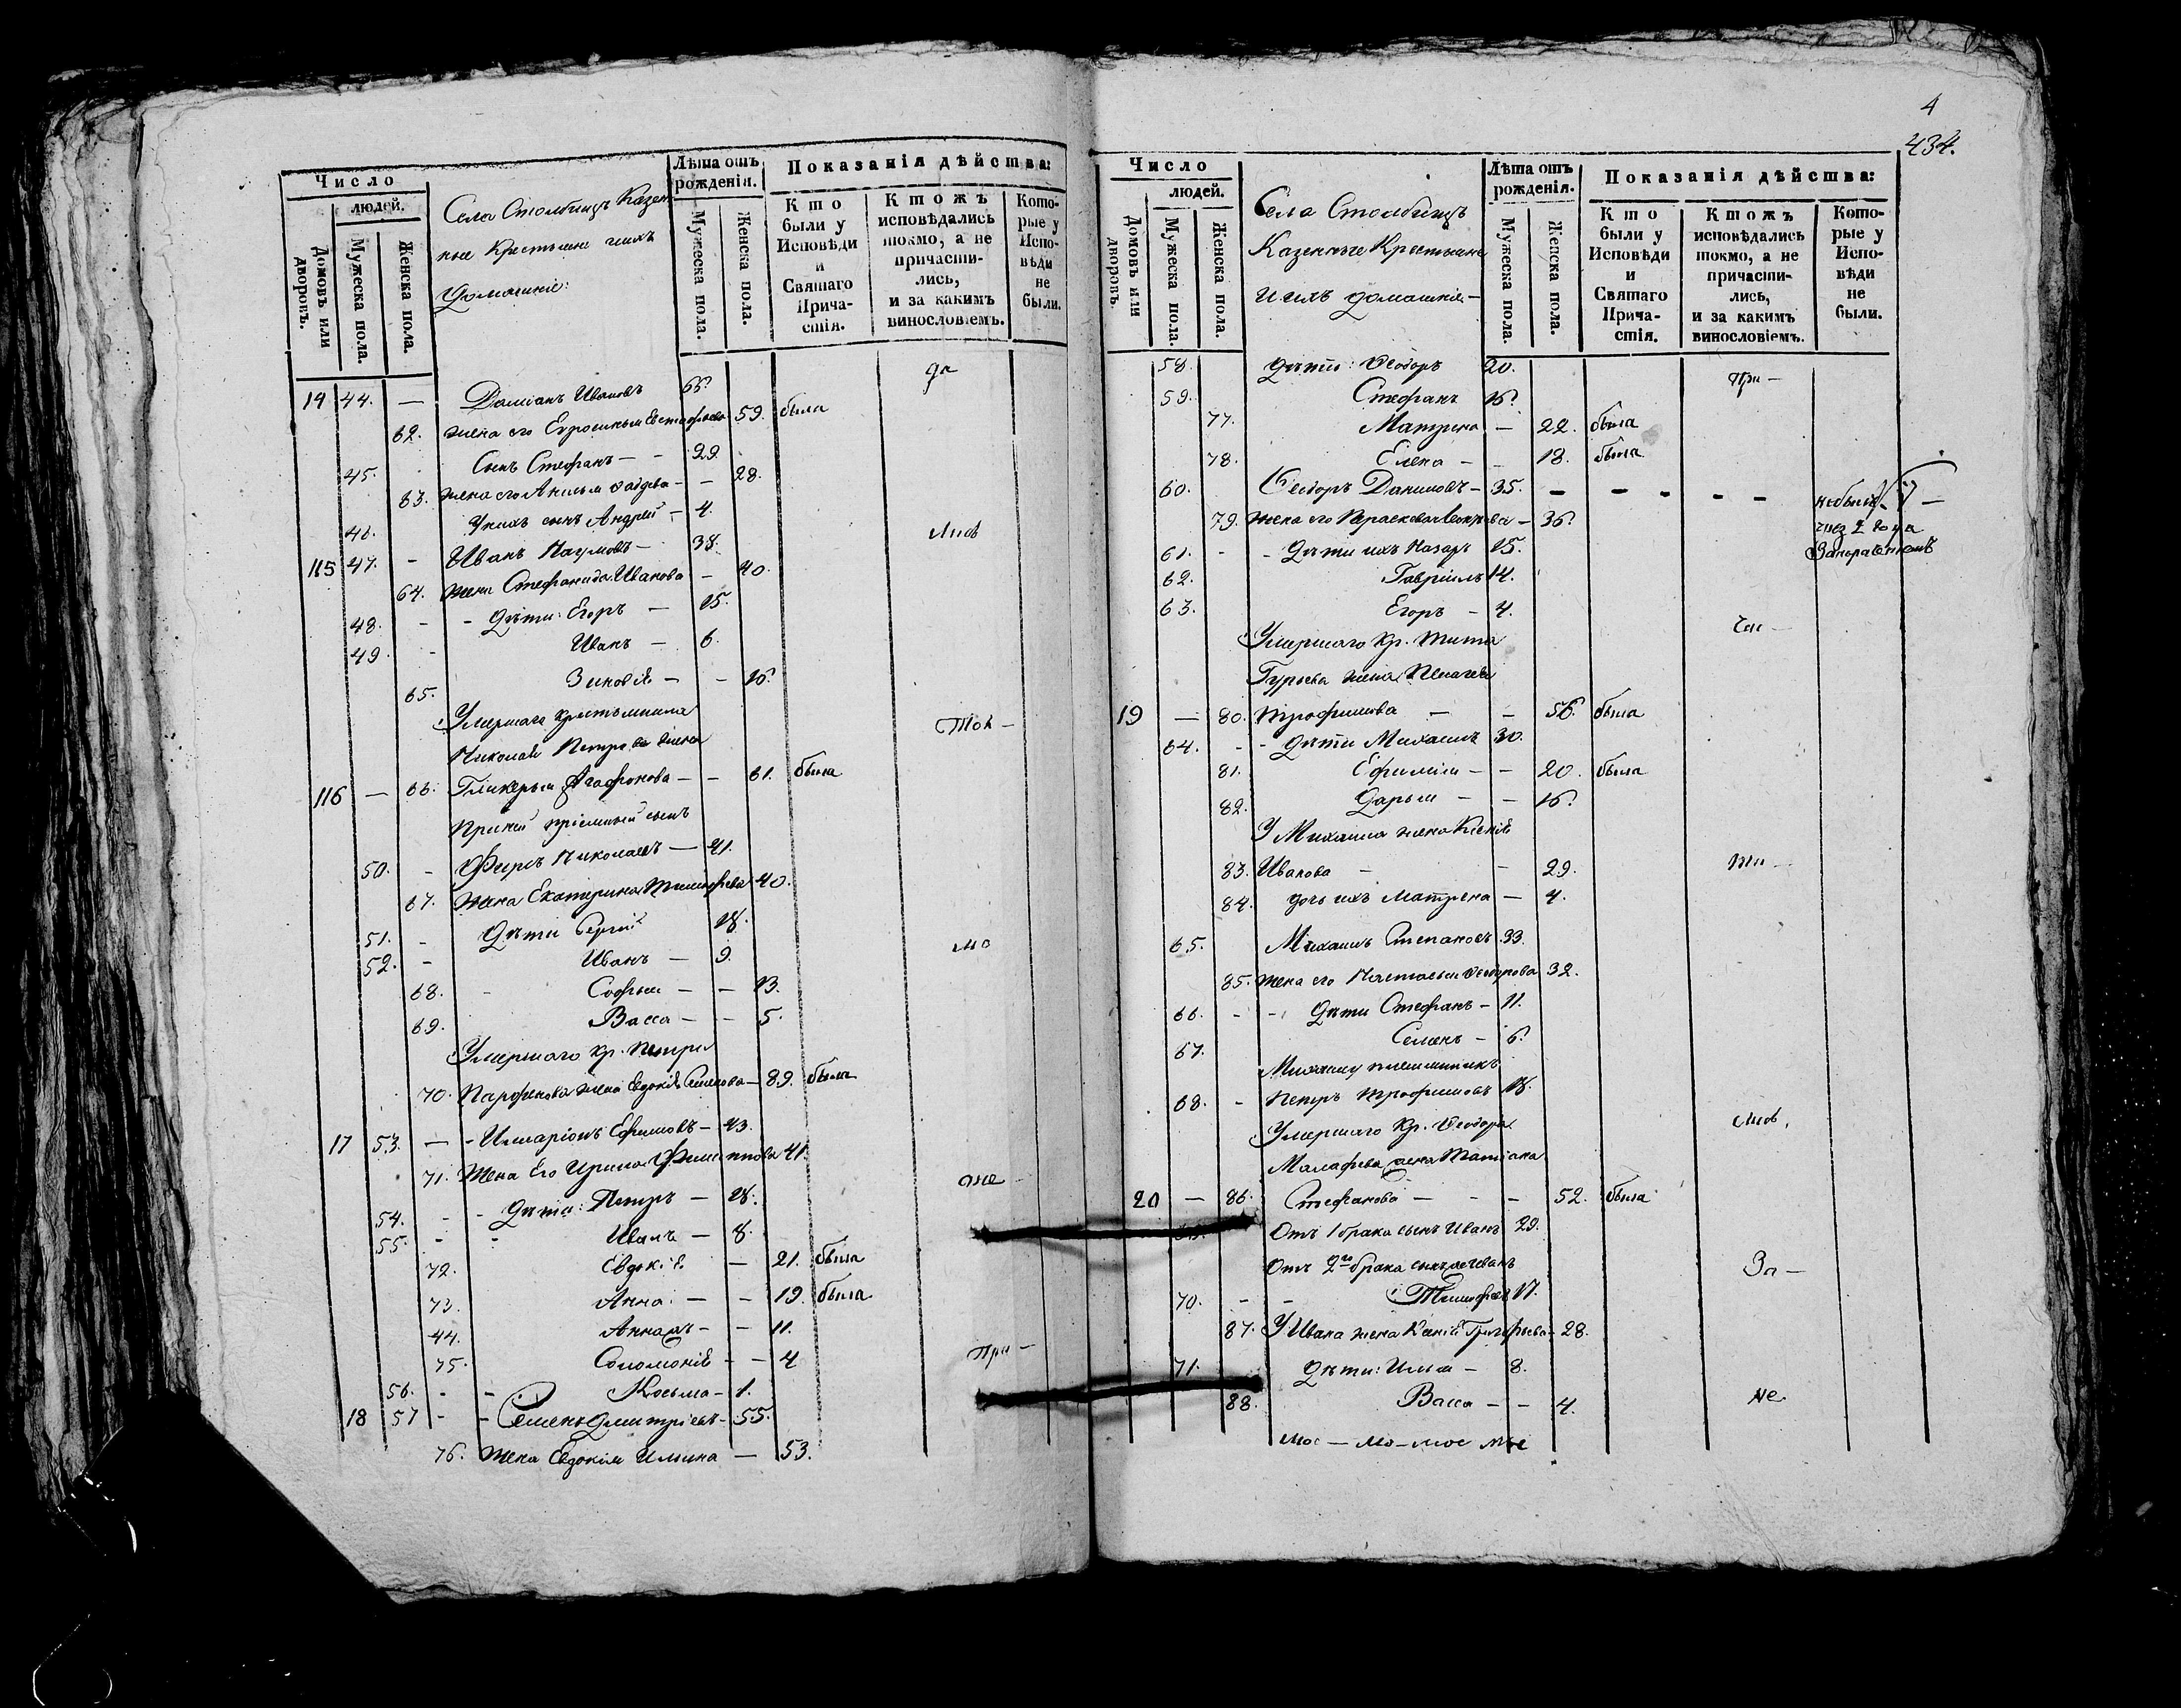 Число
людей.
Домовъ или дворовъ.
Мужеска пола.
Женска пола.
Села Столбищъ Казен
ные Крестьяне ихъ
домашніе:
Лѣта отъ рожденія.
Мужеска пола.
Женска пола.
Показанія дѣйства:
Кто были у Исповѣди и Святаго Причастія.
Ктожъ исповѣдались токмо, а не причастились, и за какимъ винословіемъ.
Которые у Исповѣди не были.
да
14 44. — Даміанъ Ивановъ 66.
62. жена его Евфросинья Евстафьева 59. была
45. Сынъ Стефанъ — - 29.
63. жена его Анисья — - 28.
46. У нихъ сынъ Андрей - 4.
115 47. - Иванъ Наумовъ — 38.
64. жена Стефанида Иванова - 40.
48. - - Дѣти: Егоръ — 15.
49. - Иванъ — 6.
65. Зиновія — - 16.
Умершаго крестьянина
Ток —
Николая Петрова жена
116 — 66. Гликерья Агафонова — - 61. была
При ней пріемный сынъ
50. - Фирсъ Николаевъ — 41.
67. жена Екатерина Тимофеева 40.
51. - Дѣти Сергій 18.
52. - Иванъ — 9.
мо
68. - Софья — - 13.
69. Васса — - 5.
Умершаго кр. Петра
70. Парфенова жена Евдокія Семенова — 89. была
17 53. — - Иларіонъ Ефимовъ — 43.
71. Жена Его Ирина Филиппова 41.
же —
54. - - Дѣти: Петръ — 18.
55. - - Иванъ — 8.
72. Евдокія — 21. была
73. Анна — - 19. была
44. Анна — - 11.
75. Соломонія - - 4
При —
56. - - Косьма — 1.
18 57 - - Семенъ Дмитріевъ - 55.
76. жена Евдокія Ильина — 53.
4
434.
Число
людей.
Домовъ или дворовъ.
Мужеска пола.
Женска пола.
Села Столбищъ
Казенные Крестьяне
и ихъ домашніе —
Лѣта отъ рожденія.
Мужеска пола.
Женска пола.
Показанія дѣйства:
Кто были у Исповѣди и Святаго Причастія.
Ктожъ исповѣдались токмо, а не причастились, и за какимъ винословіемъ.
Которые у Исповѣди не были.
58. Дѣти: Ѳеодоръ 20.
При —
59. Стефанъ 16.
77. Матрена — 22. была
78. Елена — - 18. была
60. Ѳеодоръ Даниловъ — 35. — — - - —
79. жена его Параскева — 36.
61. - - Дѣти ихъ Назаръ 15.
62. Гавріилъ 14.
63. Егоръ - 4.
Умершаго кр. Тита
Гурьева жена Пелагея
19 — 80. Трофимова — - 56. была
64. - - Дѣти Михаилъ 30.
81. Ефимія — - 20. была
82. Дарья — - 16.
У Михаила жена Ксенія
83. Иванова — - 29.
84. дочь ихъ Матрена — 4.
65. Михаилъ Степановъ 33.
85. жена его Настасья Ѳеодорова 32.
66. - - Дѣти Стефанъ — 11.
67. Семенъ - 6.
Михаилу племянникъ
68. - Петръ Трофимовъ 18.
Умершаго Кр. Ѳеодора
Малафѣева жена Татіана
20 — 86. Стефанова — - - 52. была
Отъ 1 брака сынъ Иванъ 29.
Отъ 2го брака
За —
70. - - Тимофей 17.
87. У Ивана жена Ксенія Григорьева — 28.
71. Дѣти: Илья — 8.
88. Васса — - 4.
не